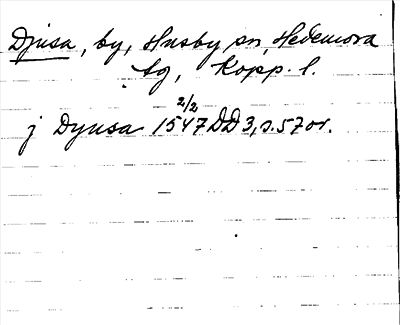 Djusa, by, Husby sn, Hedemora
tg, Kopp. l.
2/2
j Dyusa 1547 DD 3, s. 57 or.